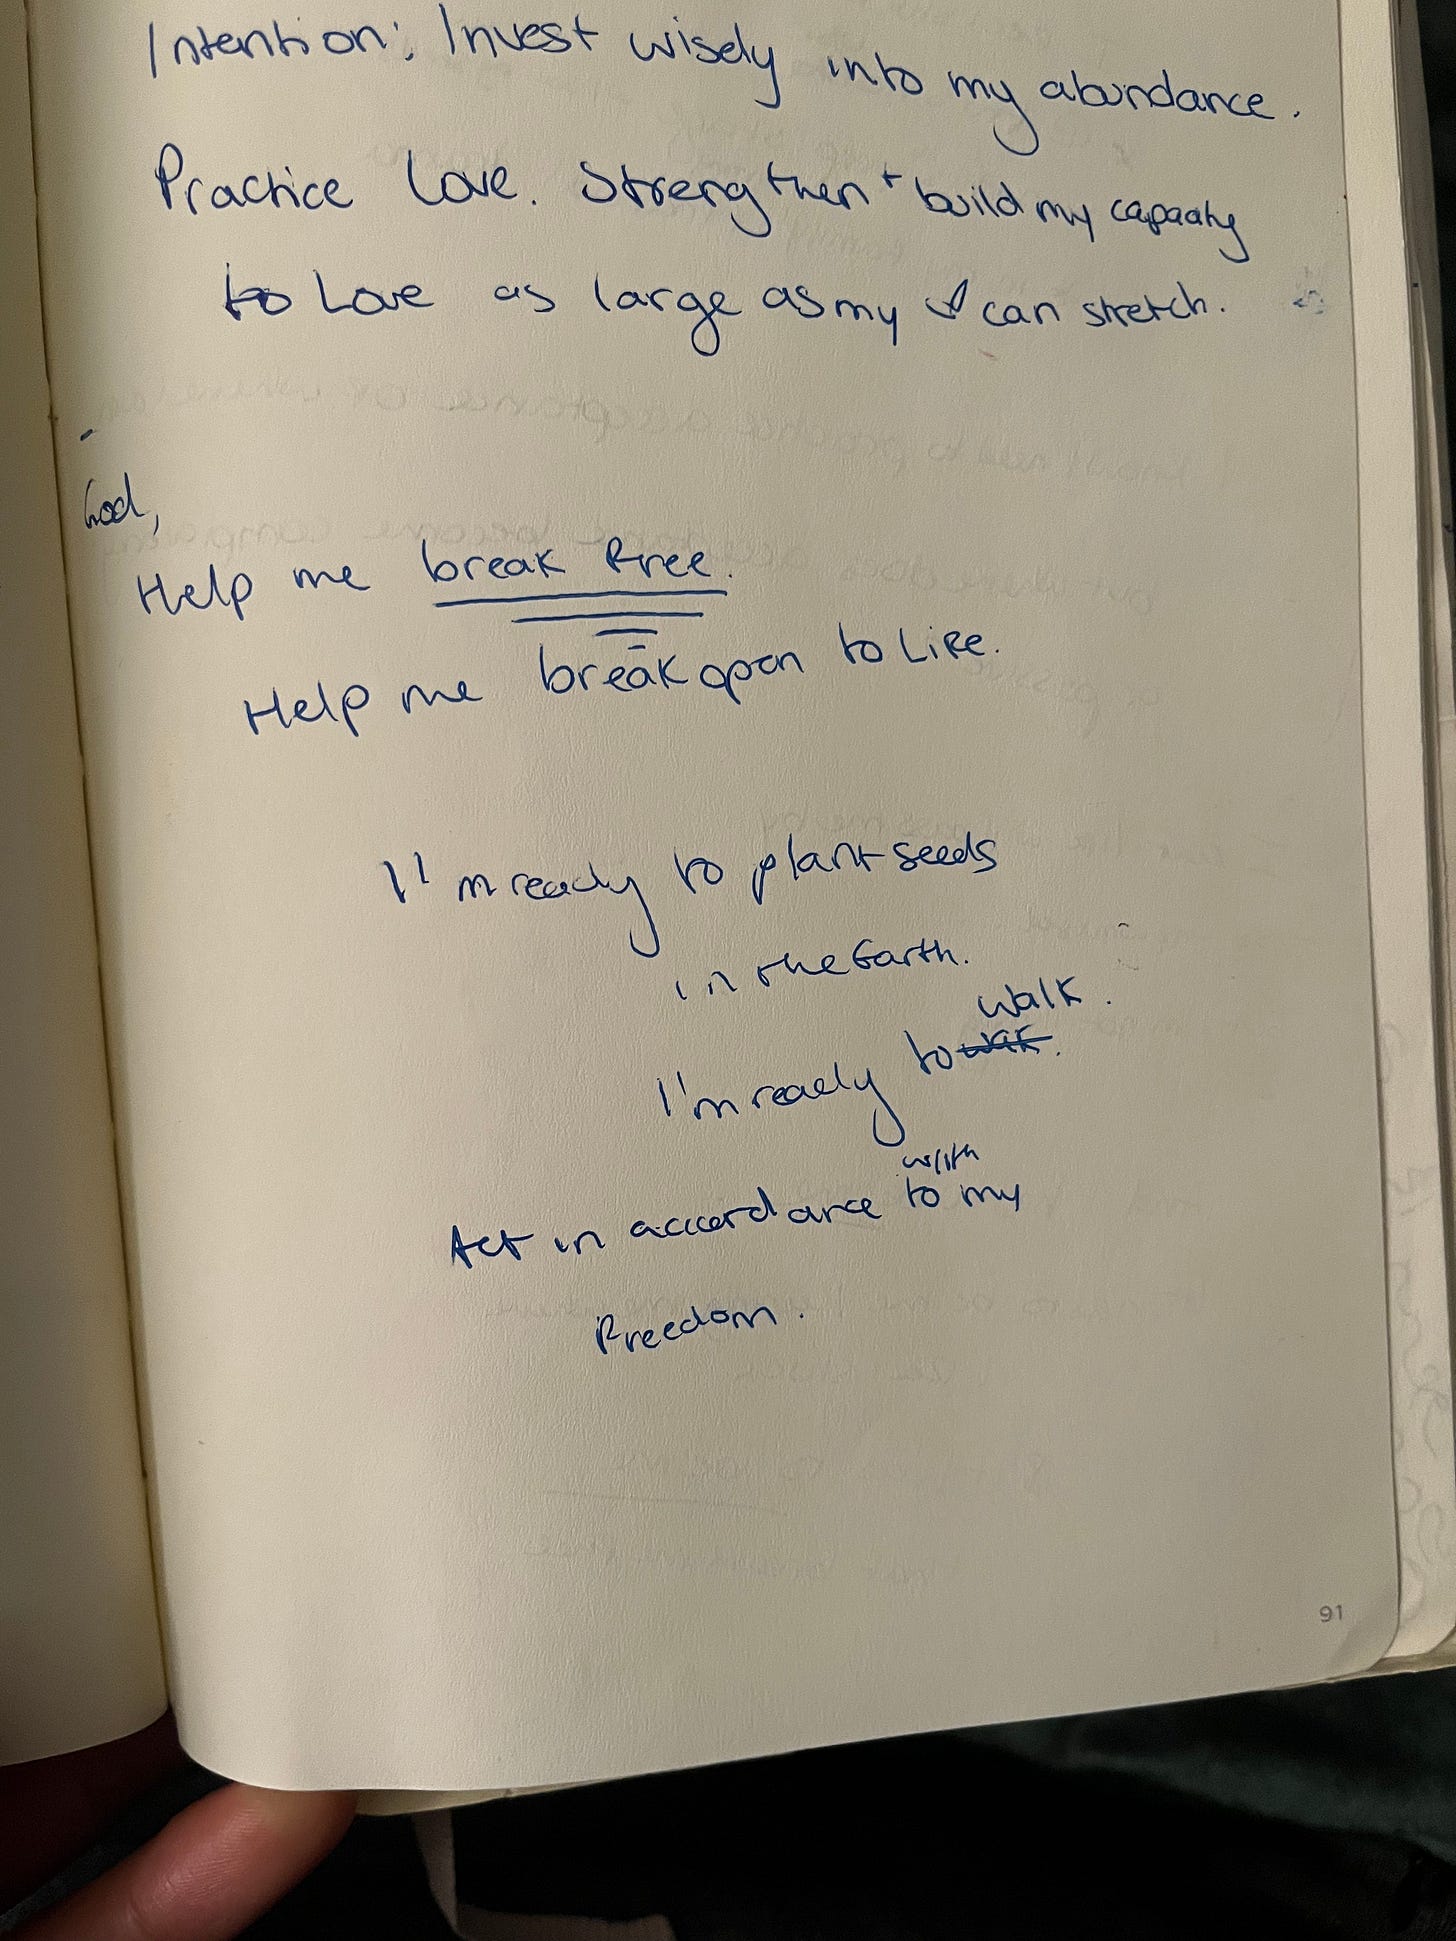 Intention: Invest wisely into my abundance.
Practice Love. Strengthen + build my capacity
to Love as large as my ♡ can stretch.
God,
Help me break free.
Help me break open to Life.
I'm ready to plant seeds
in the Earth.
walk.
I'm ready to walk.
with
Act in accordance to my
Freedom.
91